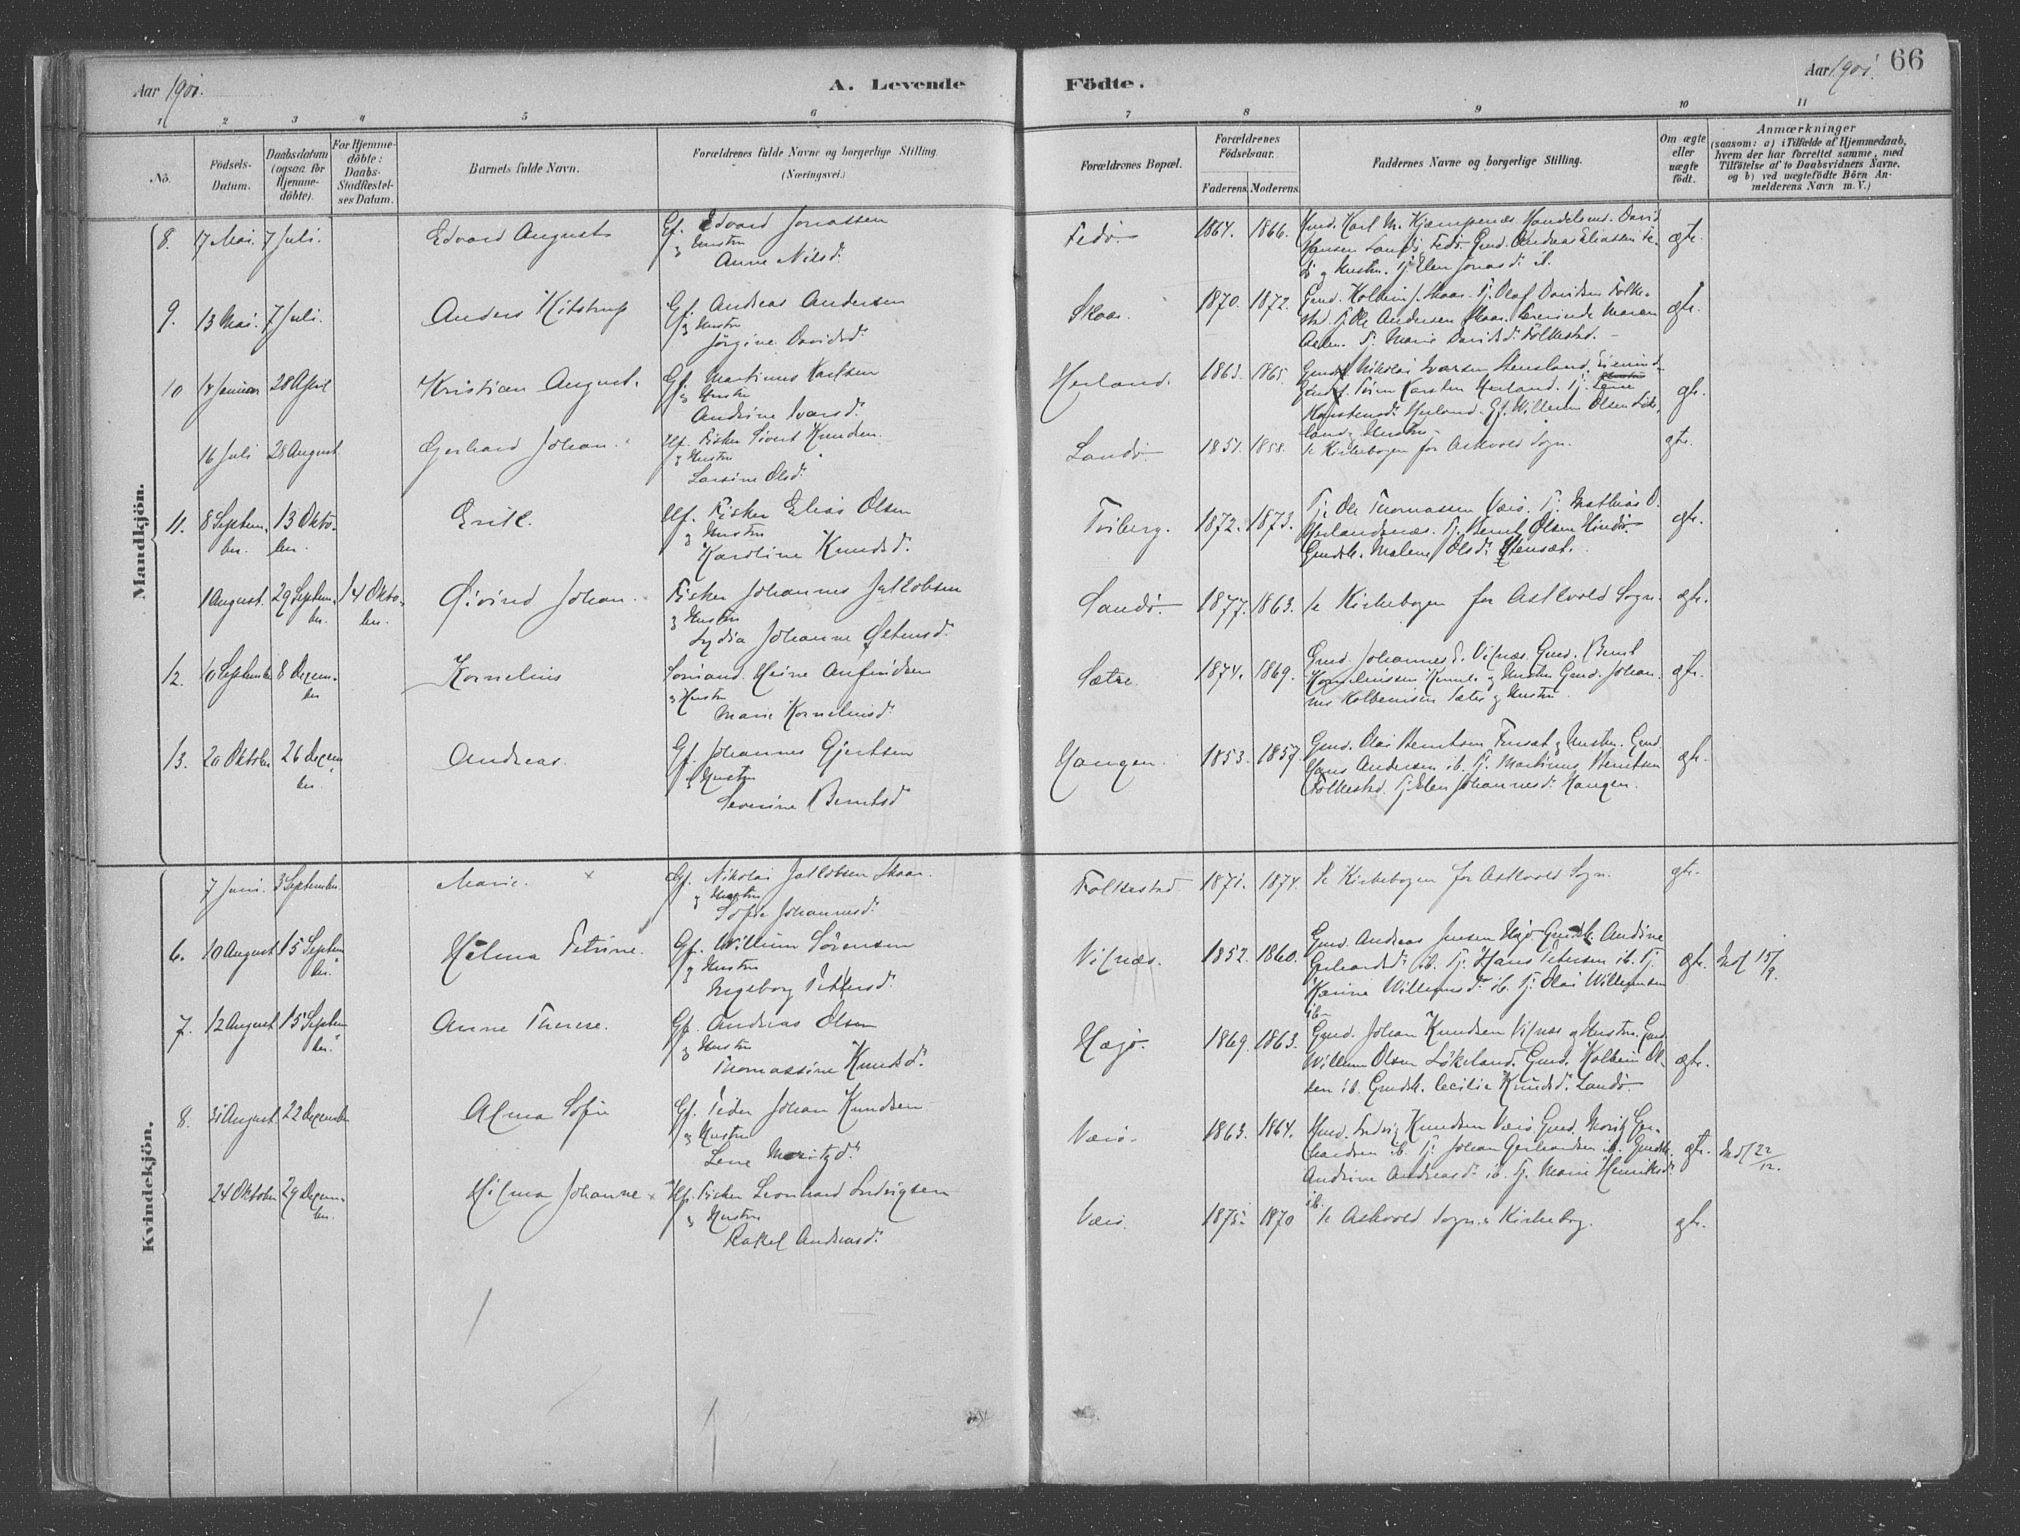 Aar 1901.
A. Levende
Födte.
Aar 1901.
66
1 2 3 4 5 6 7 8 9 10 11
No.
Födsels-
Datum.
Daabsdatum
(ogsaa for
Hjemme-
döbte).
For Hjemme-
döbte:
Daabs-
Stadfæstel-
ses Datum.
Barnets fulde Navn.
Forældrenes fulde Navne og borgerlige Stilling.
(Næringsvei.)
Forældrenes Bopæl.
Forældrenes
Födselsaar.
Faderens. Moderens.
Faddernes Navne og borgerlige Stilling.
Om ægte
eller
uægte
födt.
Anmærkninger
(saasom: a) i Tilfælde af Hjemmedaab,
hvem der har forrettet samme, med
Tilföielse af to Daabsvidners Navne,
og b) ved uægtefödte Börn An-
melderens Navn m. V.)
Mandkjön.
8. 17 Mai. 7 Juli. Edvard August Gf. Edvard Jonassen
g Hustru
Anne Nilsd.
Fedö. 1864. 1866. Gmd. Karl M. Kjempenæs. Handelsmd. David
Hansen Landö, Fedö. Gmd. Andreas Eliassen Fe-
dö g Hustru. Pj. Elen Jonasd. ib.
ægte.
9. 13 Mai. 7 Juli. Anders Kitstrup Gf. Andreas Andersen
g Hustru
Jörgine Davidsd.
Skaar. 1870. 1872. Gmd. Kolbein J. Skaar. Pj. Olaf Davidsen Folke-
stad. Pj. Ole Andersen Skaar. Lærerinde Maren
Pj. Marie Davidsd. Folkestad.
ægte.
10 14 Januar 28 April Kristian August. Gf. Martinus Karlsen
g Hustru
Andrine Ivarsd.
Herland. 1863. 1865. Nikolai Ivarsen Stensland.
Karsten Herland. Pj. Lene
Karstensd. Herland. Gf. Willum Olsen Löke-
land g Hustru.
ægte.
16 Juli 25 August Gerhard Johan. Hf. Fisker Sivert Knudsen.
g Hustru
Larsine Olsd.
Landö. 1851. 1858. Se Kirkebogen for Askvold Sogn.
ægte.
11. 8 Septem-
ber. 13 Okto-
ber. Erik. Hf. Fisker Elias Olsen
g Hustru
Karoline Knudsd.
Tviberg. 1872. 1873. Pj. Ole Thomassen Værö. Pj. Mathias O.
Herlandsnæs. Pj. Bernt Olsen Hindö
Gmdk. Malene Olsd. Stensæt.
ægte.
1 August. 29 Septem-
ber. 14 Okto-
ber. Öivind Johan. Fisker Johannes Jakobsen
g Hustru
Lydia Johanne Östensd.
Landö. 1877. 1863. Se Kirkebogen for Askvold Sogn.
ægte.
12. 10 September 8 Decem-
ber Kornelius Sömand. Heine Anfindsen
g Hustru
Marie Korneliusd.
Sætre. 1874. 1869. Gmd. Johannes E. Vifnæs. Gmd. Bernt
Korneliussen g Hustru Gmd. Johan-
nes Kolbeinsen Sæter g Hustru
ægte.
13. 20 Oktober 26 Decem-
ber. Andreas. Gf. Johannes Gjertsen
g Hustru
Severine Berntsd.
Hangen. 1853. 1857. Gmd. Olai Berntsen Fursæt g Hustru. Gmd.
Hans Andersen ib. Pj. Martinus Berntsen
Folkestad. Pj. Elen Johannesd. Hangen.
ægte.
Kvindekjön.
7 Juni. 3 September. Marie. × Gf. Nikolai Jakobsen Skaar.
g Hustru
Sofie Johannesd.
Folkestad. 1871. 1874. Se Kirkebogen for Askvold Sogn.
ægte.
6. 10 August 15 Septem-
ber. Helma Petrine. Gf. Willum Sörensen
g Hustru
Ingeborg Pettersd.
Vifnæs. 1852. 1860. Gmd. Andreas Jensen Hæjö Gmdk. Andrine
Gerhardsd. ib. Pj. Hans Petersen ib. Pj.
Karine Willumsd. ib. Pj. Olai Willumsen
ib.
ægte. Indf 15/9.
7. 12 August 15 Septem-
ber. Anne Therese. Gf. Andreas Olsen
g Hustru
Thomassine Knudsd.
Hæjö. 1869. 1863. Gmd. Johan Knudsen Vifnæs g Hustru. Gmd.
Willum Olsen Lökeland. Gmd. Kolbein Ol-
sen ib. Gmdk. Cecilie Knudsd. Landö
ægte.
8. 31 August 22 December Alma Sofie Gf. Peder Johan Knudsen
g Hustru
Lene Moritzd.
Værö. 1863. 1864. Gmd. Ludvig Knudsen Værö Gmd. Moritz Ger-
hardsen ib. Pj. Johan Gerhardsen ib. Gmdk.
Andrine Andreasd. ib. Pj. Marie Henriksd.
ib.
ægte. Indf 22/12.
24 Oktober 29 Decem-
ber. Hilma Johanne × Hf. Fisker Leonhard Ludvigsen
g Hustru
Rakel Andreasd.
Værö. 1875. 1870 Se Askvold Sogns Kirkebog.
ægte.